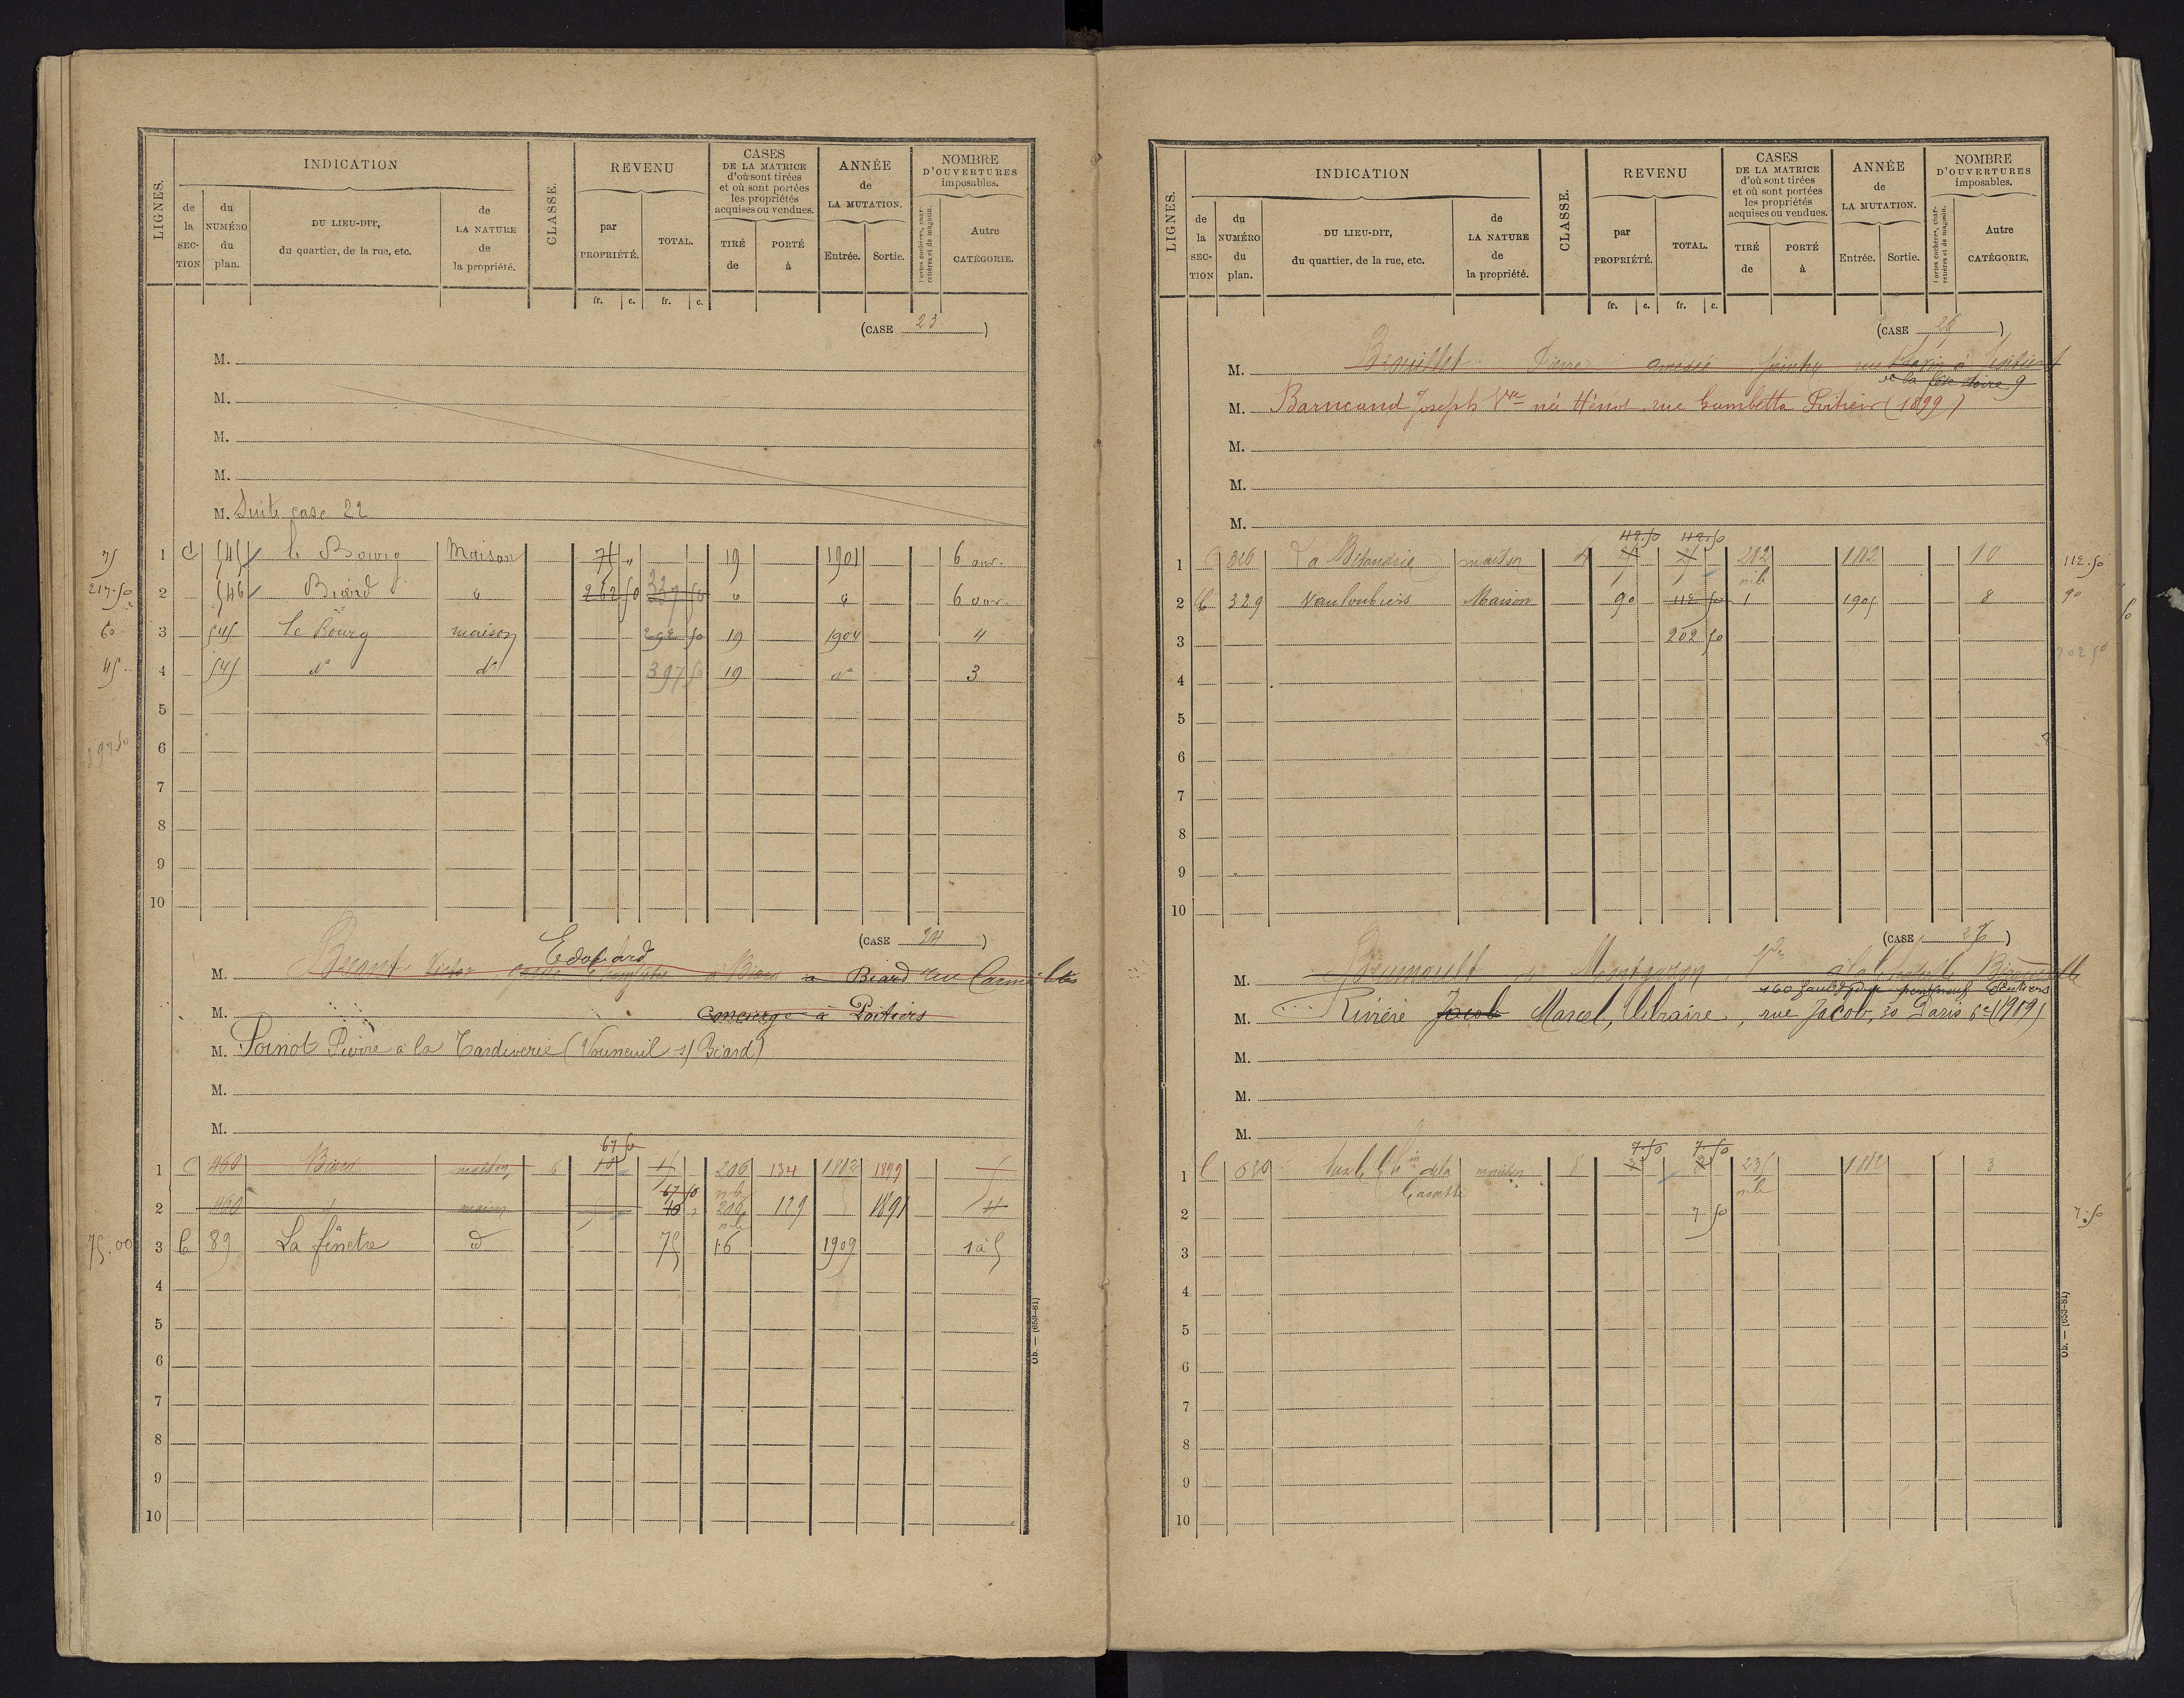 LIGNES.
INDICATION
de la SECTION
du NUMÉRO du plan.
DU LIEU-DIT, du quartier, de la rue, etc.
de LA NATURE de la propriété.
CLASSE.
REVENU
par PROPRIÉTÉ.
TOTAL.
fr. c. fr. c.
CASES DE LA MATRICE d'où sont tirées et où sont portées les propriétés acquises ou vendues.
TIRÉ de
PORTÉ à
ANNÉE de LA MUTATION.
Entrée. Sortie.
NOMBRE D'OUVERTURES imposables.
Portes cochères, charretières et de magasin.
Autre CATÉGORIE.
(CASE 23)
M.
M.
M.
M.
M. Suite case 22
75 1 C 545 le Bourg Maison 75 " 19 1901 6 ouv.
217.50 2 546 Biard " 262 50 337 50 " " 6 ouv.
60 3 545 Le Bourg maison 292 50 19 1904 4
45 4 545 d° d° 397 50 19 d° 3
5
397 50 6
7
8
9
10
(CASE 24)
Edouard
M. Victor à Biard à Biard rue
M. concierge à Poitiers
M. Poinot Pierre à la Tardiverie (Vouneuil s/ Biard)
M.
M.
67 50
1 C 460 Biard maison 6 10 206 134 1882 1899 5
67 50 nb
2 460 maison 10 206 129 1891 4
nb
75.00 3 C 89 La fenêtre d° 75 16 1909 1 à 5
4
5
6
7
8
9
10
Ob. — (653-81)
LIGNES.
INDICATION
de la SECTION
du NUMÉRO du plan.
DU LIEU-DIT, du quartier, de la rue, etc.
de LA NATURE de la propriété.
CLASSE.
REVENU
par PROPRIÉTÉ.
TOTAL.
fr. c. fr. c.
CASES DE LA MATRICE d'où sont tirées et où sont portées les propriétés acquises ou vendues.
TIRÉ de
PORTÉ à
ANNÉE de LA MUTATION.
Entrée. Sortie.
NOMBRE D'OUVERTURES imposables.
Portes cochères, charretières et de magasin.
Autre CATÉGORIE.
(CASE 25)
M. Brouillet Pierre amédée peintre rue à Poitiers
9
M. Barucand Joseph Vve née Hénot rue Gambetta Poitiers (1899)
M.
M.
M.
112.50 112.50
1 C 326 maison 4 282 1882 10 112.50
nb
2 C 329 Maison 90 112 50 1 1905 8 90
3 202 50
202 50
4
5
6
7
8
9
10
(CASE 26)
M. de
160 faubg du pont neuf Poitiers
M. Rivière Jacob Marcel, libraire, rue Jacob, 30 Paris 6e (1919)
M.
M.
M.
7.50 7.50
1 C 520 maison 8 235 1882 3
nb
2 7 50 7.50
3
4
5
6
7
8
9
10
Ob. — (653-81)